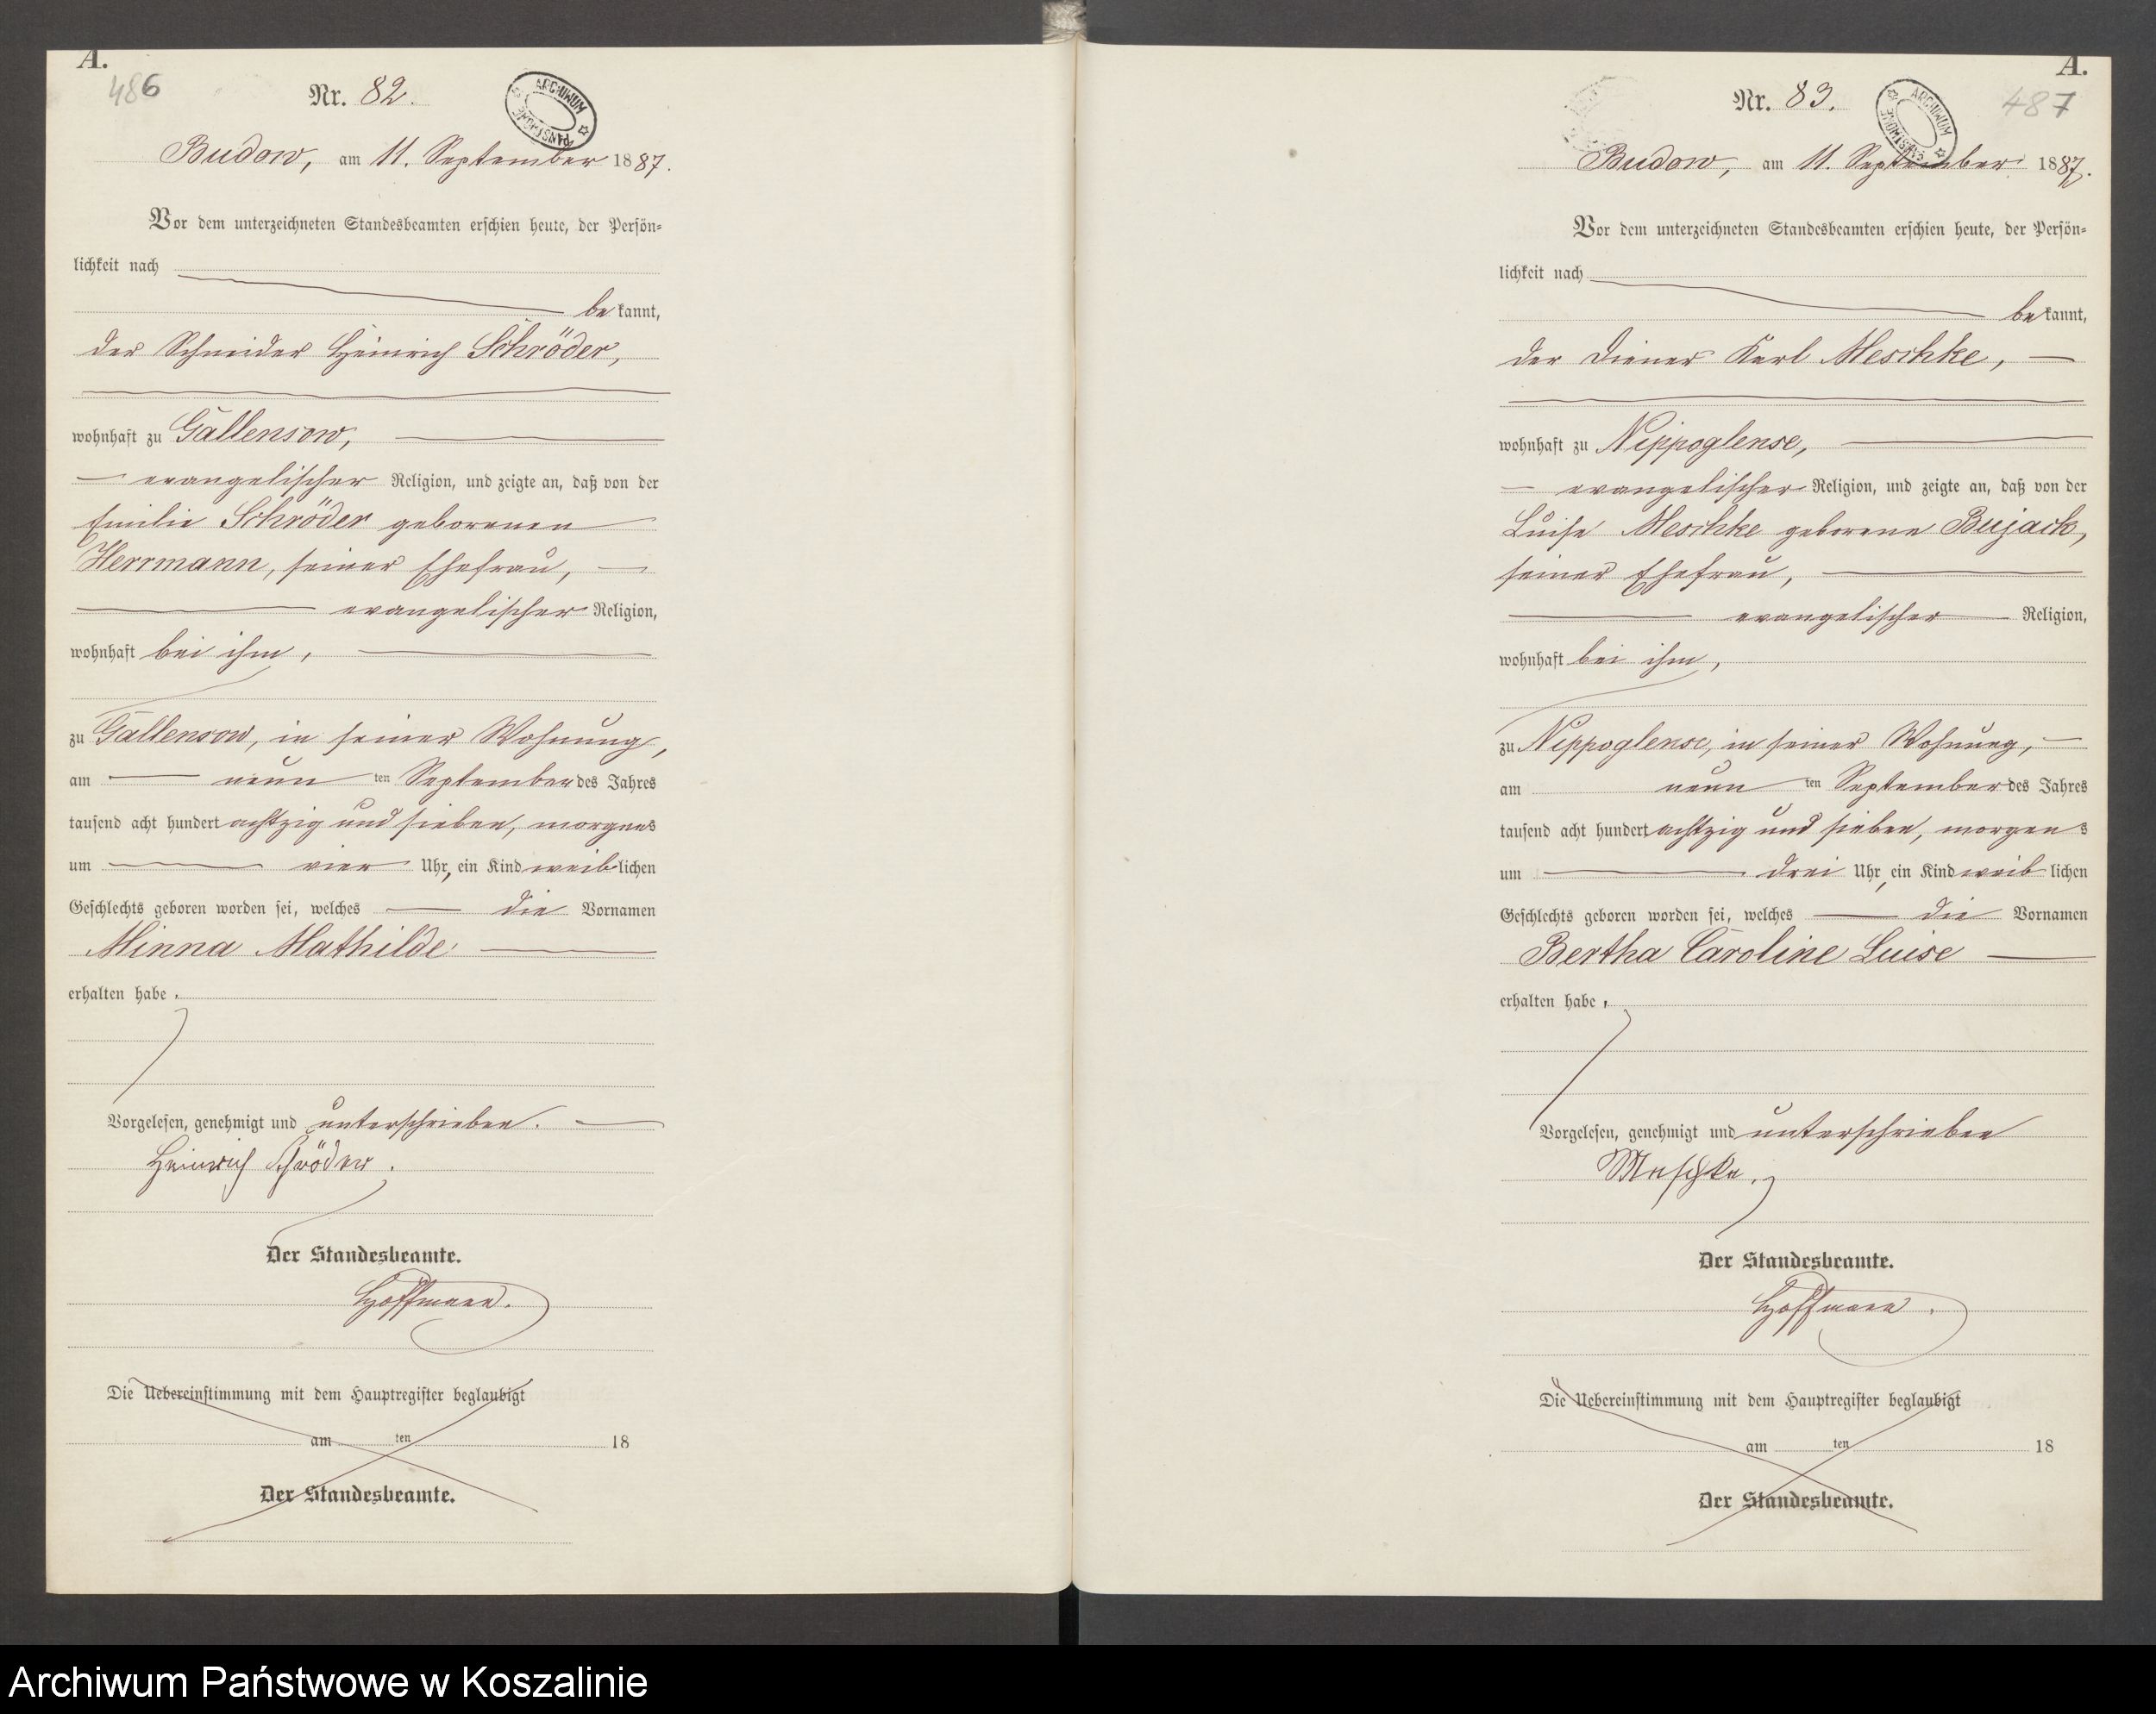 A.
486
Nr. 82.
ARCHIWUM PAŃSTWOWE
Budow, am 11. September 1887.
Vor dem unterzeichneten Standesbeamten erschien heute, der Persön-
lichkeit nach
bekannt,
der Schneider Heinrich Schröder,
wohnhaft zu Gallensow,
evangelischer Religion, und zeigte an, daß von der
Emilie Schröder geborenen
Herrmann, seiner Ehefrau,
evangelischer Religion,
wohnhaft bei ihm,
zu Gallensow, in seiner Wohnung,
am neun ten September des Jahres
tausend acht hundert achtzig und sieben, morgens
um vier Uhr, ein Kind weiblichen
Geschlechts geboren worden sei, welches die Vornamen
Minna Mathilde
erhalten habe.
Vorgelesen, genehmigt und unterschrieben.
Heinrich Schröder.
Der Standesbeamte.
Hoffmann.
Die Uebereinstimmung mit dem Hauptregister beglaubigt
am ten 18
Der Standesbeamte.
A.
487
Nr. 83.
ARCHIWUM PAŃSTWOWE
Budow, am 11. September 1887.
Vor dem unterzeichneten Standesbeamten erschien heute, der Persön-
lichkeit nach
bekannt,
der Diener Karl Meschke,
wohnhaft zu Nippoglense,
evangelischer Religion, und zeigte an, daß von der
Luise Meschke geborene Bujack,
seiner Ehefrau,
evangelischer Religion,
wohnhaft bei ihm,
zu Nippoglense, in seiner Wohnung,
am neun ten September des Jahres
tausend acht hundert achtzig und sieben, morgens
um drei Uhr, ein Kind weiblichen
Geschlechts geboren worden sei, welches die Vornamen
Bertha Caroline Luise
erhalten habe.
Vorgelesen, genehmigt und unterschrieben
Meschke.
Der Standesbeamte.
Hoffmann.
Die Uebereinstimmung mit dem Hauptregister beglaubigt
am ten 18
Der Standesbeamte.
Archiwum Państwowe w Koszalinie